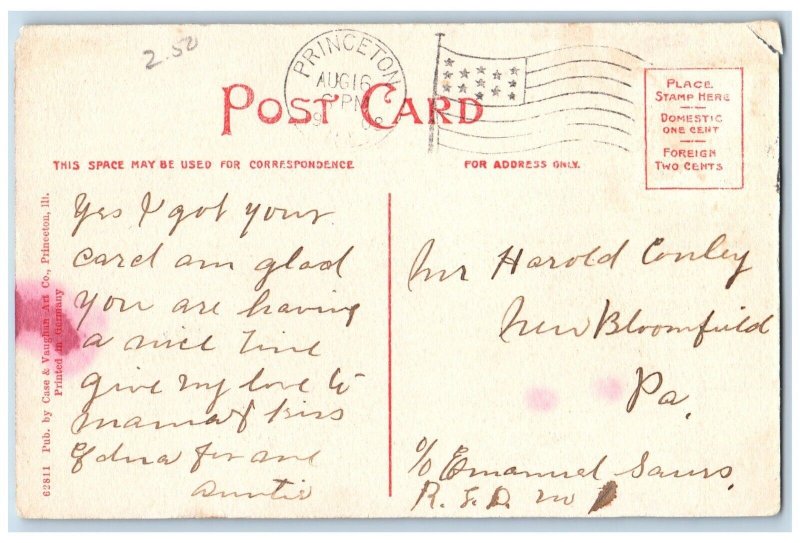 2.50
PRINCETON
AUG 16
6 PM
POST CARD
PLACE
STAMP HERE
DOMESTIC
ONE CENT
FOREIGN
TWO CENTS
THIS SPACE MAY BE USED FOR CORRESPONDENCE
FOR ADDRESS ONLY.
62811 Pub. by Case & Vaughan Art Co., Princeton, Ill.
Printed in Germany
Yes I got your
card am glad
you are having
a nice time
give my love to
mama & kiss
Edna for me
Auntie
Mr Harold Conley
New Bloomfield
Pa.
c/o Emanuel
R. F. D. no